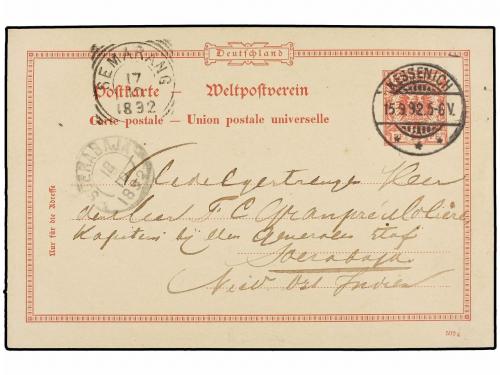 Deutschland
SEMARANG
17
1892
Postkarte – Weltpostverein
Carte postale – Union postale universelle
MESSENICH
15.9.92.5-6 V.
SOERABAJA
18
1892
Nur für die Adresse
Heer
den Heer F C Granpré Molière
Kapitein bij den Generalen Staf
Soerabaja
Ned Ost Indien